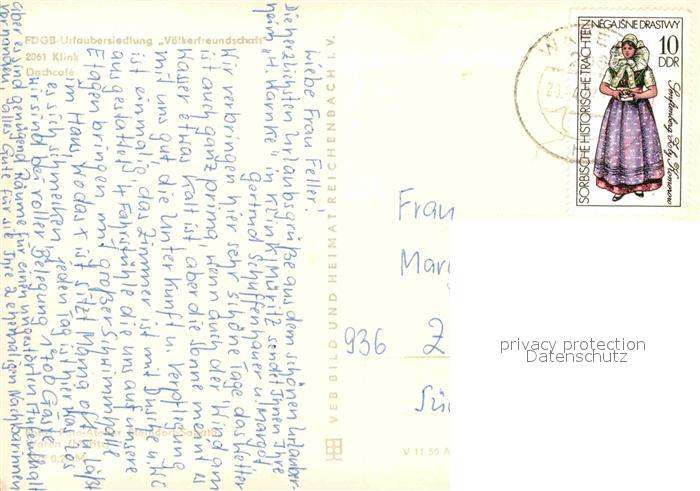 FDGB-Urlaubersiedlung „Völkerfreundschaft"
2061 Klink
Dachcafé
Liebe Frau Feller!
Die herzlichsten Urlaubsgrüße aus dem schönen Urlauber-
heim „H. Warnke" in Klink/Müritz sendet Ihnen Ihre
Gertrud Schuffenhauer u. Margot.
Wir verbringen hier sehr schöne Tage das Wetter
ist auch ganz prima, wenn auch der Wind am
Wasser etwas kalt ist, aber die Sonne meint es
mit uns gut die Unterkunft u. Verpflegung
ist einmalig, das Zimmer ist mit Dusch u. WC
ausgestattet, 4 Fahrstühle die uns auf unsere
Etagen bringen und großer Schwimmhalle
im Haus, sitzt Mama oft u. läßt
es sich schmecken, jeden Tag ist hier was los
wir sind bei voller Belegung 1700 Gäste
aber es sind genügend Räume für einen ungestörten Aufenthalt
vorhanden, alles Gute für Sie Ihre 2 ehemaligen Nachbarinnen
VEB BILD UND HEIMAT REICHENBACH I. V.
V 11 50 A
SORBISCHE HISTORISCHE TRACHTEN
NĚGAJŠNE DRASTWY
10
DDR
Frau
936
Z
privacy protection
Datenschutz